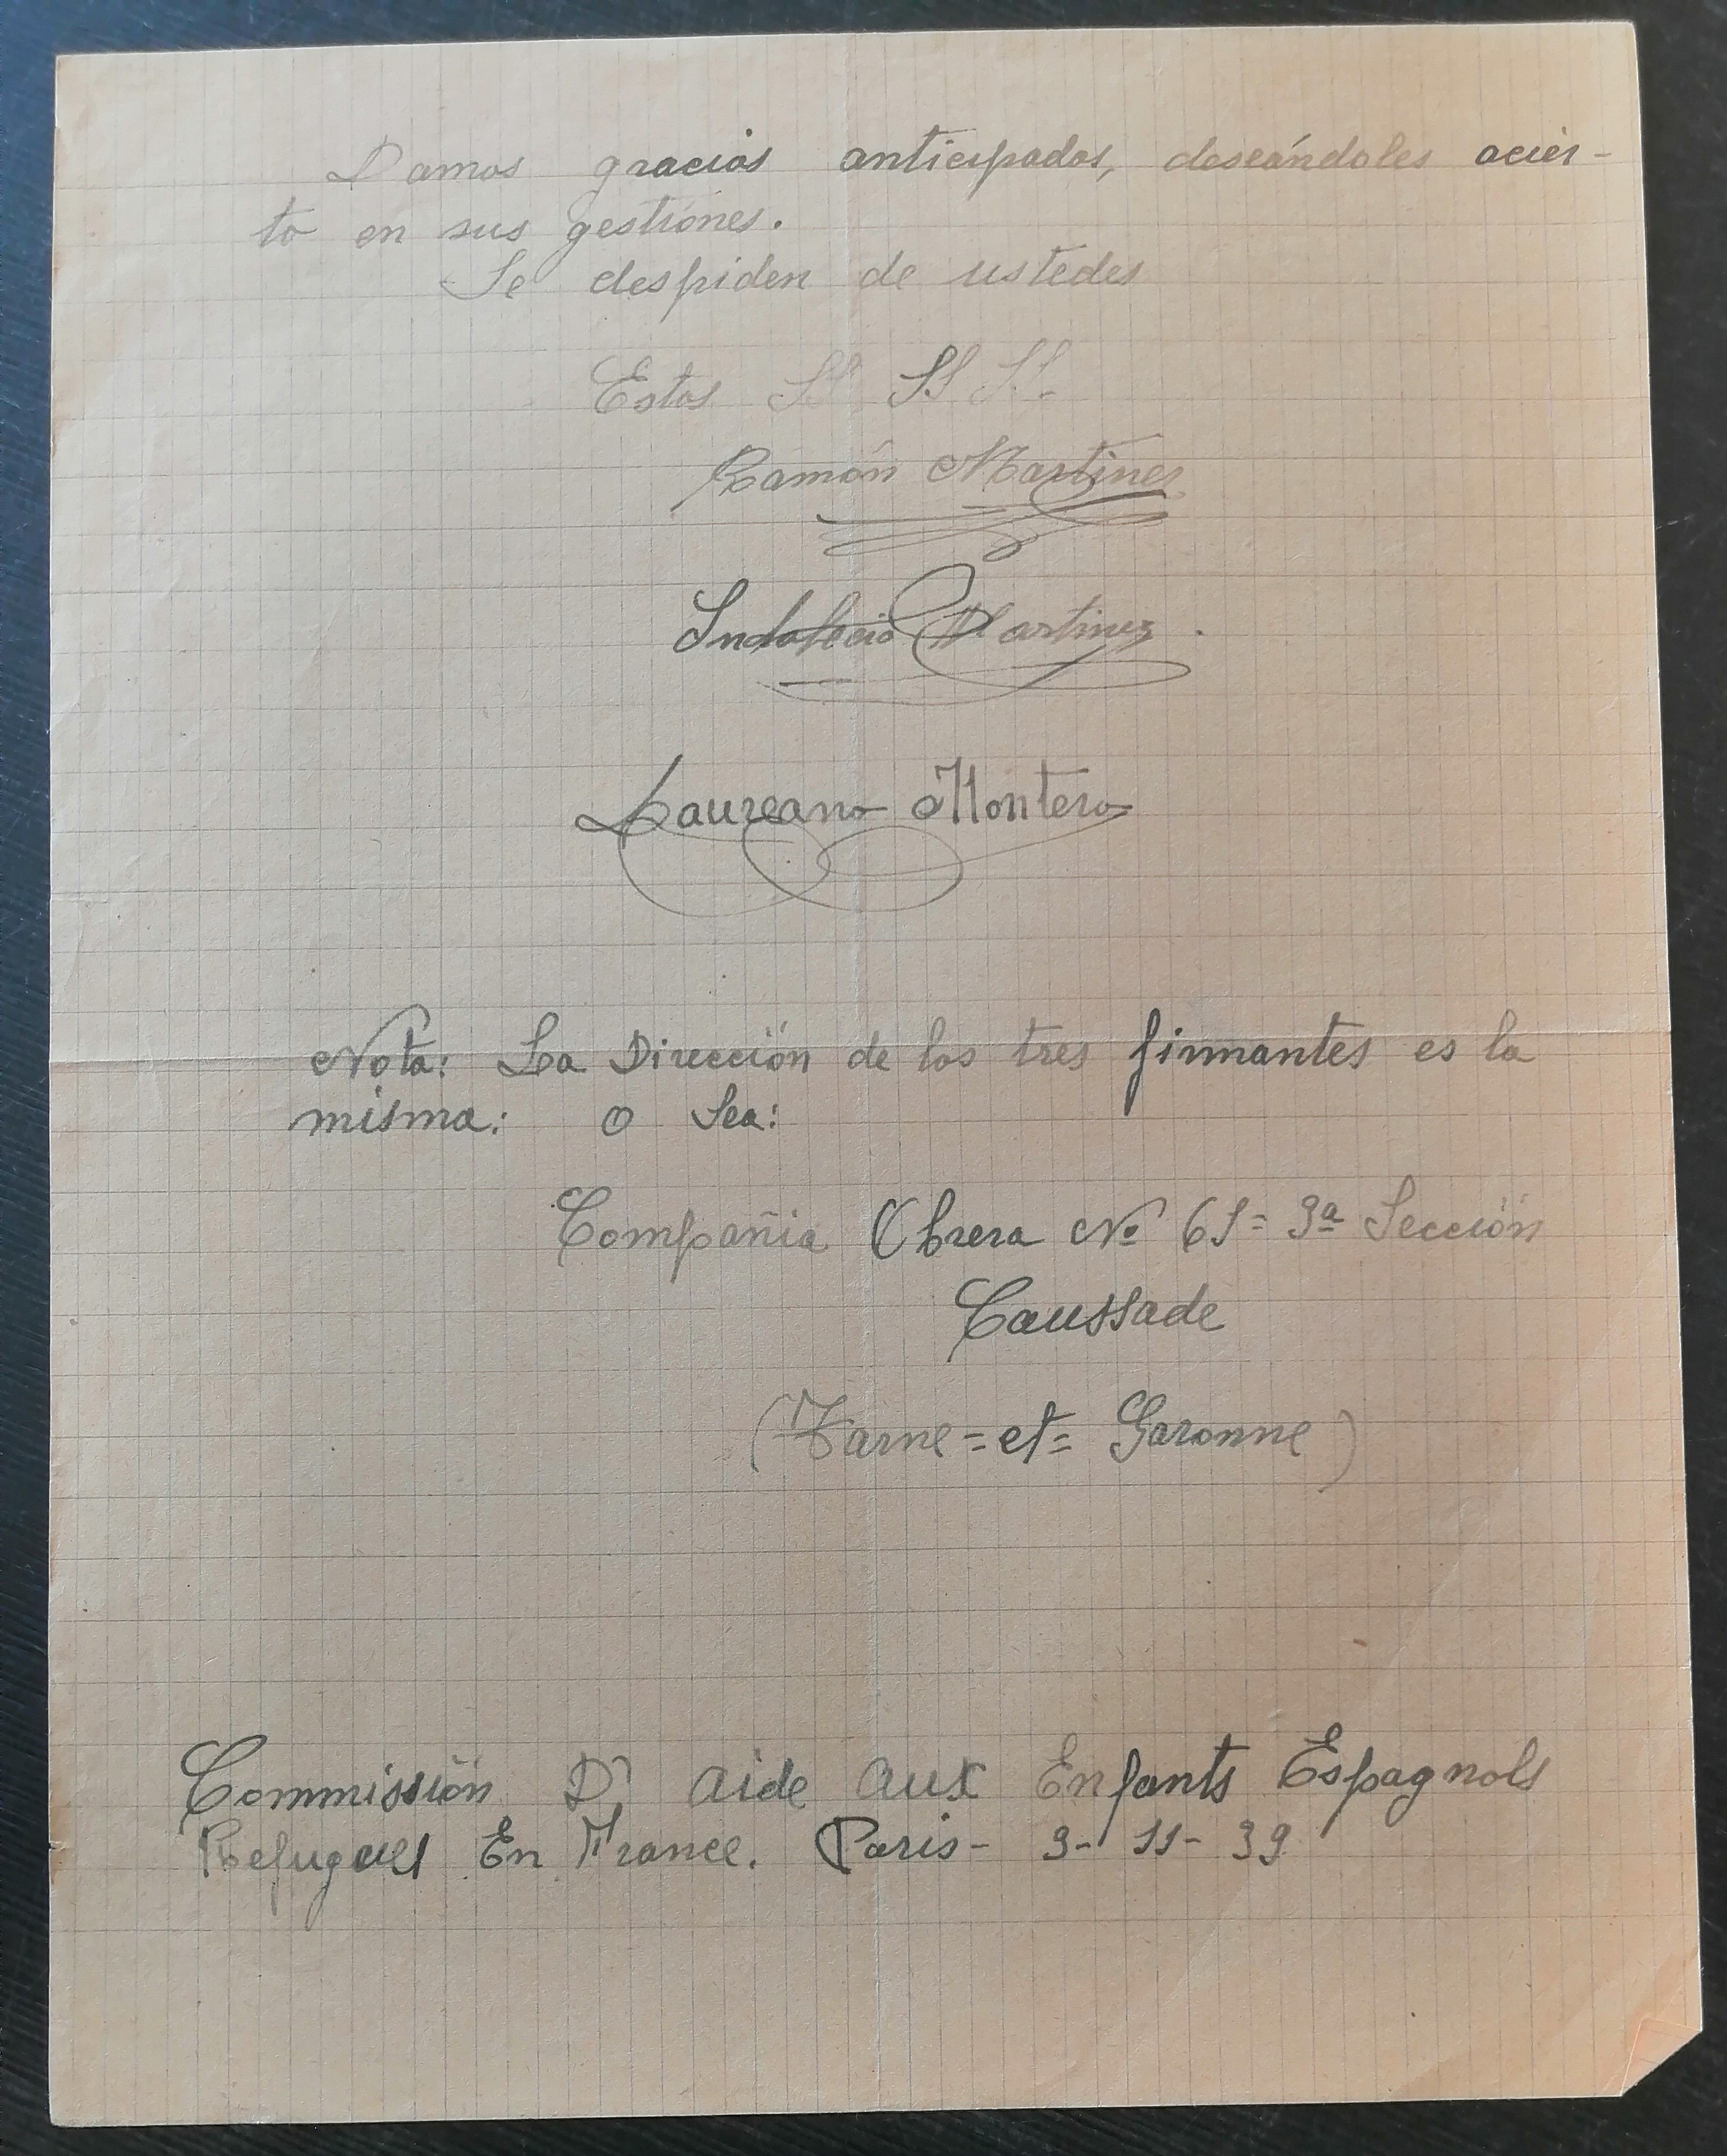 Damos gracias anticipadas, deseándoles acier-
to en sus gestiones.
Se despiden de ustedes
Estos SS SS SS.
Ramón Martines
Indalecio Martinez.
Laureano Montero
Nota: La Dirección de los tres firmantes es la
misma: o sea:
Compañia Obrera No 61= 3ª Sección
Caussade
(Tarne=et= Garonne)
Commissión D' aide aux Enfants Espagnols
En France. Paris- 9- 11- 39